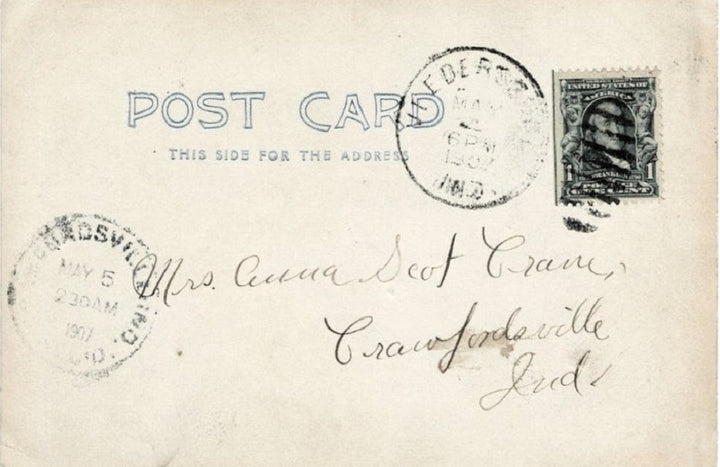 POST CARD
THIS SIDE FOR THE ADDRESS
MAY
6 PM
1907
IND.
UNITED STATES OF
AMERICA
FRANKLIN
1 POSTAGE 1
ONE CENT
MAY 5
230AM
1907
IND.
Mrs. Anna Scot Crane,
Crawfordsville
Ind.